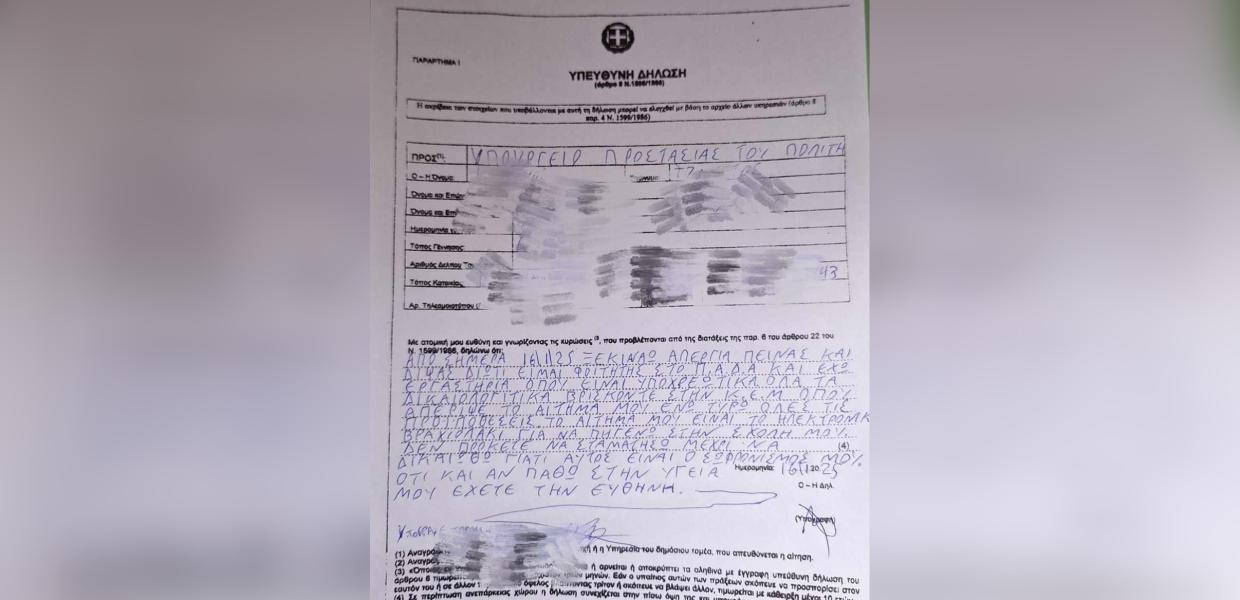 ΠΑΡΑΡΤΗΜΑ Ι
ΥΠΕΥΘΥΝΗ ΔΗΛΩΣΗ
(άρθρο 8 Ν.1599/1986)
Η ακρίβεια των στοιχείων που υποβάλλονται με αυτή τη δήλωση μπορεί να ελεγχθεί με βάση το αρχείο άλλων υπηρεσιών (άρθρο 8
παρ. 4 Ν. 1599/1986)
ΠΡΟΣ(1): ΥΠΟΥΡΓΕΙΟ ΠΡΟΣΤΑΣΙΑΣ ΤΟΥ ΠΟΛΙΤΗ
Ο – Η Όνομα:
Όνομα και Επών
Όνομα και Επ
Ημερομηνία
Τόπος Γέννησης:
Αριθμός Δελτίου
Τόπος Κατοικίας 43
Αρ. Τηλεομοιοτύπου
Με ατομική μου ευθύνη και γνωρίζοντας τις κυρώσεις (3), που προβλέπονται από της διατάξεις της παρ. 6 του άρθρου 22 του
Ν. 1599/1986, δηλώνω ότι:
ΑΠΟ ΣΗΜΕΡΑ 16/1/25 ΞΕΚΙΝΑΩ ΑΠΕΡΓΙΑ ΠΕΙΝΑΣ ΚΑΙ
ΔΙΨΑΣ ΔΙΩΤΙ ΕΙΜΑΙ ΦΟΙΤΗΤΗΣ ΣΤΟ Π.Α.Δ.Α ΚΑΙ ΕΧΩ
ΕΡΓΑΣΤΗΡΙΑ ΟΠΟΥ ΕΙΝΑΙ ΥΠΟΧΡΕΩΤΙΚΑ ΟΛΑ ΤΑ
ΔΙΚΑΙΟΛΟΓΙΤΙΚΑ ΒΡΙΣΚΟΝΤΕ ΣΤΗΝ Κ.Ε.Μ ΟΠΟΥ
ΑΠΕΡΙΨΕ ΤΟ ΑΙΤΗΜΑ ΜΟΥ ΕΝΩ ΤΥΡΩ ΟΛΕΣ ΤΙΣ
ΠΡΟΥΠΟΘΕΣΕΙΣ. ΤΟ ΑΙΤΗΜΑ ΜΟΥ ΕΙΝΑΙ ΤΟ ΗΛΕΚΤΡΟΝΙΚ
ΒΡΑΧΙΟΛΑΚΙ ΓΙΑ ΝΑ ΠΗΓΕΝΩ ΣΤΗΝ ΣΧΟΛΗ ΜΟΥ.
ΔΕΝ ΠΡΟΚΕΤΕ ΝΑ ΣΤΑΜΑΤΗΣΩ ΜΕΧΡΙ ΝΑ (4)
ΔΙΚΑΙΩΘΩ ΓΙΑΤΙ ΑΥΤΟΣ ΕΙΝΑΙ Ο ΣΩΦΡΟΝΙΣΜΟΣ ΜΟΥ.
ΟΤΙ ΚΑΙ ΑΝ ΠΑΘΩ ΣΤΗΝ ΥΓΕΙΑ Ημερομηνία: 16/1 2025
ΜΟΥ ΕΧΕΤΕ ΤΗΝ ΕΥΘΗΝΗ. Ο – Η Δηλ.
(Υπογραφή)
(1) Αναγράφ χή ή η Υπηρεσία του δημόσιου τομέα, που απευθύνεται η αίτηση.
(2) Αναγρά
(3) «Όποιος ή αρνείται ή αποκρύπτει τα αληθινά με έγγραφη υπεύθυνη δήλωση του
άρθρου 8 τιμωρείται τριών μηνών. Εάν ο υπαίτιος αυτών των πράξεων σκόπευε να προσπορίσει στον
εαυτόν του ή σε άλλον όφελος βλάπτοντας τρίτον ή σκόπευε να βλάψει άλλον, τιμωρείται με κάθειρξη μέχρι 10
(4) Σε περίπτωση ανεπάρκειας χώρου η δήλωση συνεχίζεται στην πίσω όψη της και